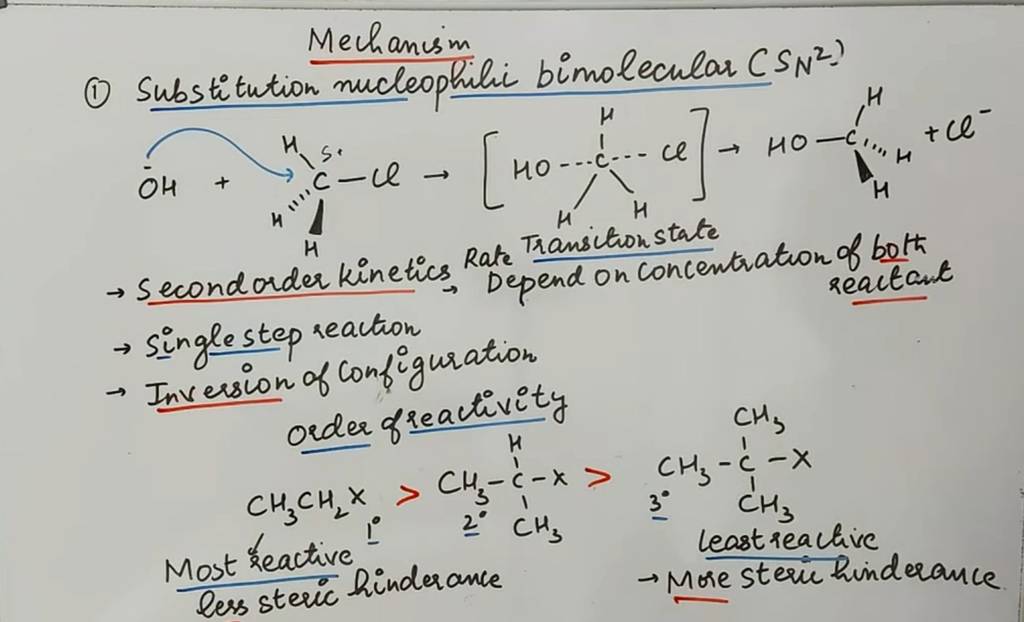 Mechanism
① Substitution nucleophilic bimolecular (SN2)
ŌH + H S. C – Cl H H → [ HO --- C --- Cl H H H ] → HO – C H H H + Cl⁻
Transition state
→ Second order kinetics → Rate Depend on concentration of both reactant
→ Single step reaction
→ Inversion of configuration
order of reactivity
CH3CH2X 1° > CH3 – C – X H CH3 2° > CH3 – C – X CH3 CH3 3°
Most reactive
less steric hinderance
least reactive
→ More steric hinderance